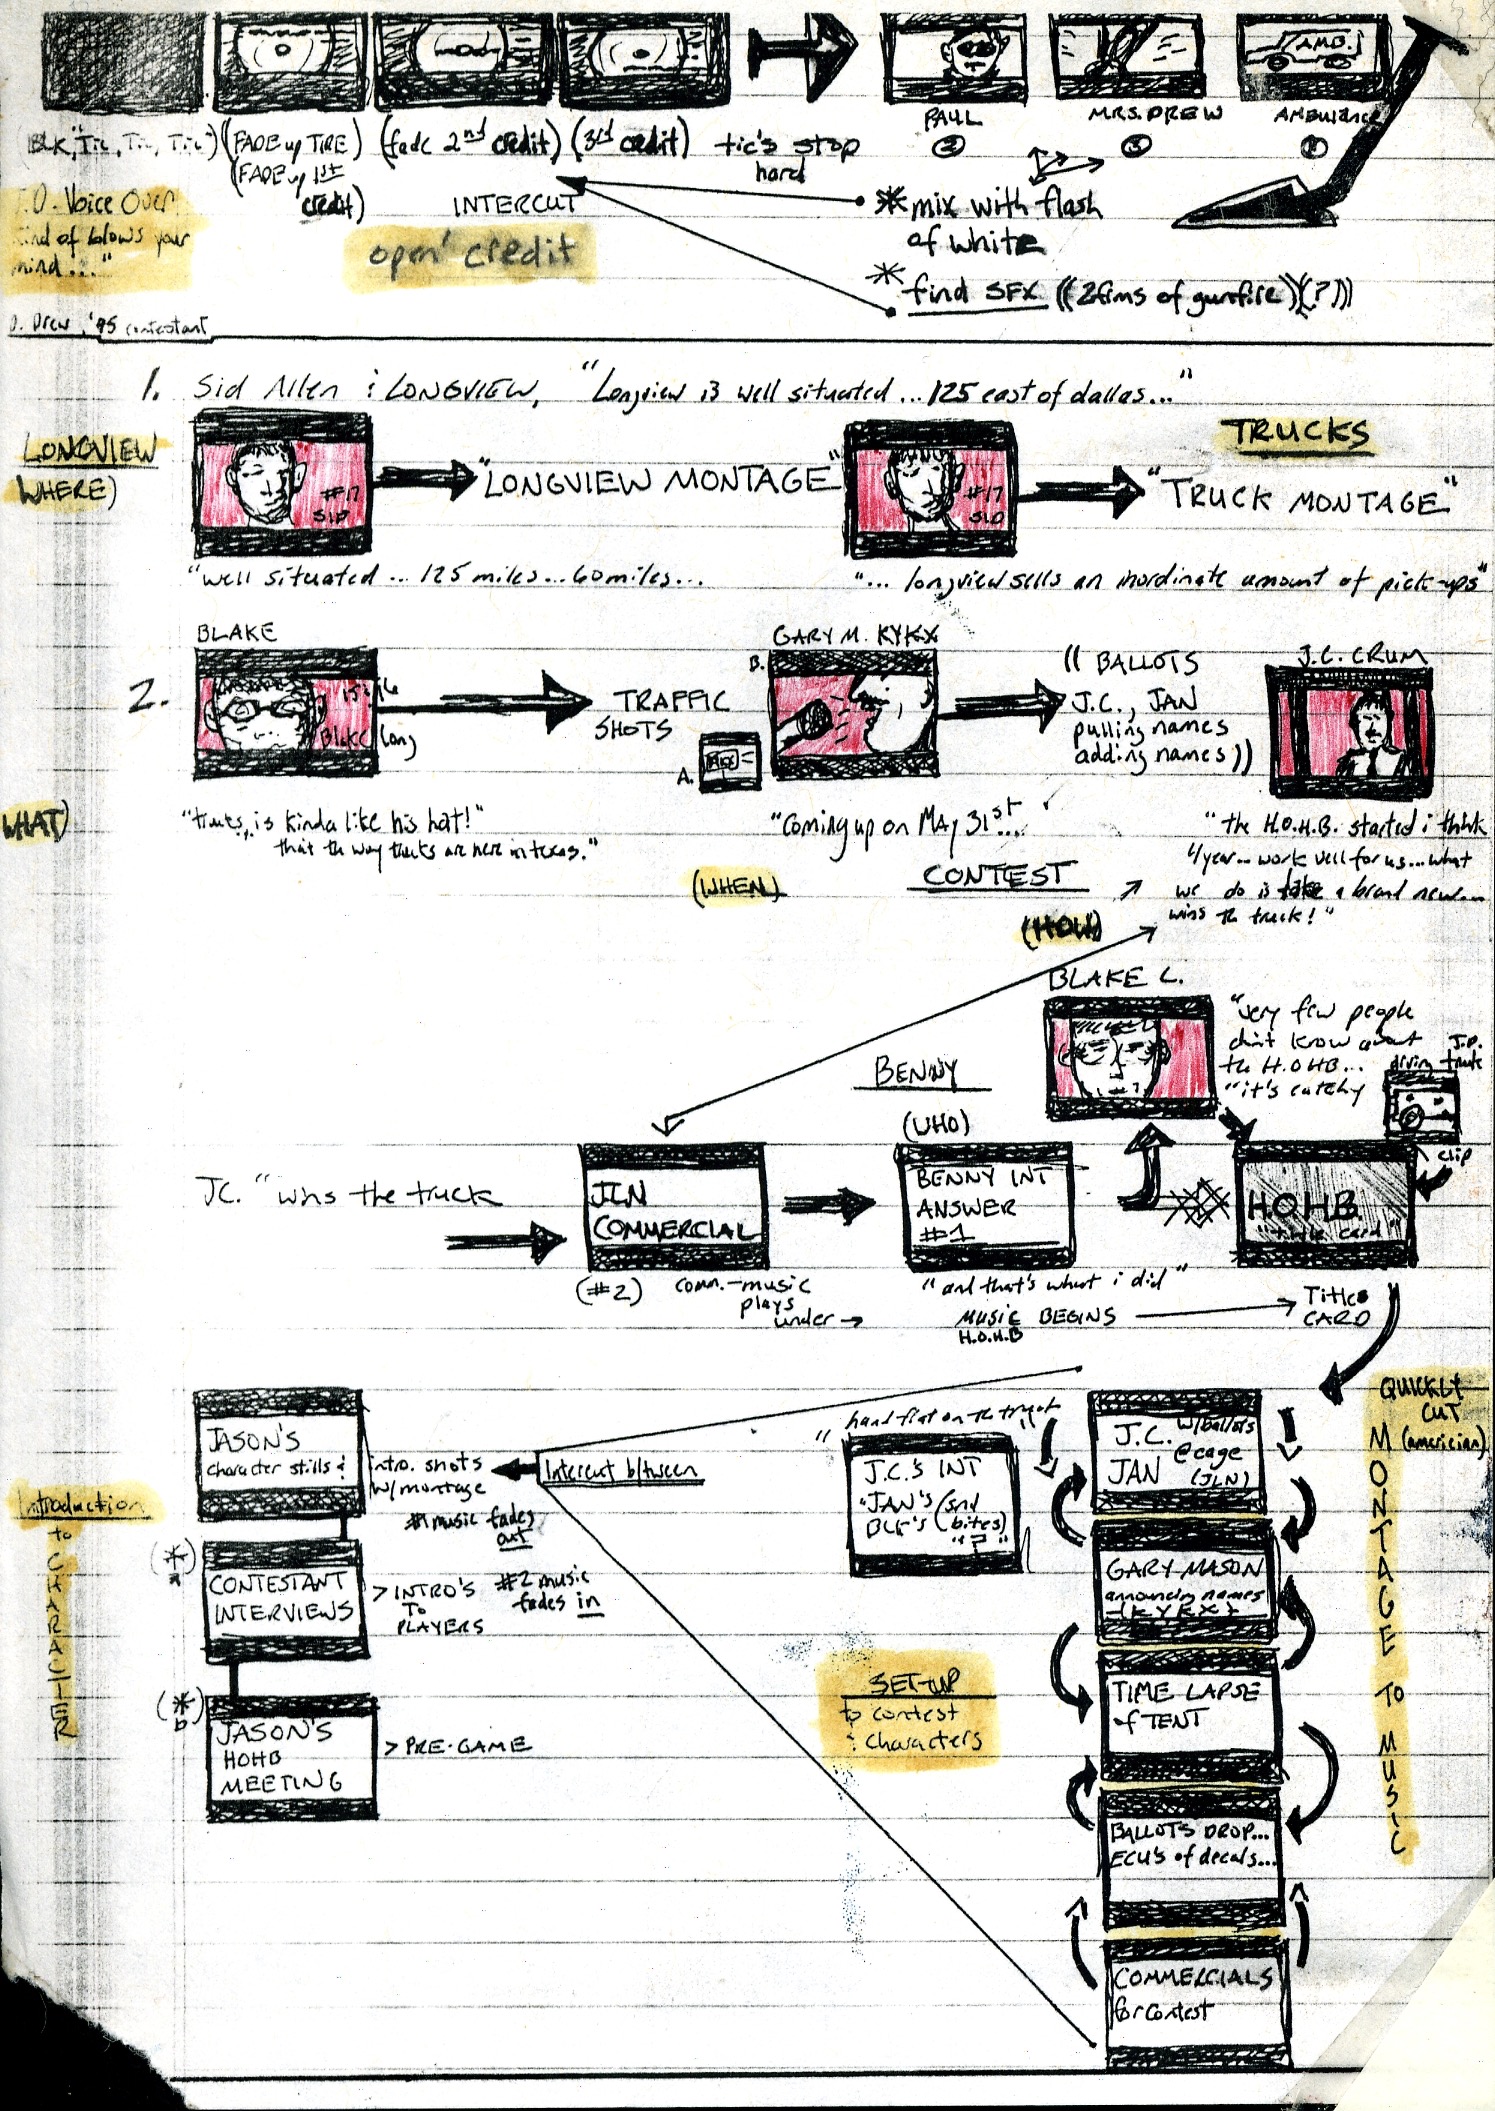 AMB.
PAUL
MRS. DREW
AMBULANCE
(BLK, "Tic, Tic, Tic")
(FADE up TIRE)
(FADE up 1st credit)
(fade 2nd credit)
(3rd credit)
tic's stop
hard
② ③
J.D. Voice Over
kind of blows your
mind..."
INTERCUT
open' credit
* mix with flash
of white
* find SFX ((2frms of gunfire)(?)))
D. Drew, '95 contestant
1. Sid Allen : LONGVIEW, "Longview is well situated... 125 east of dallas..."
LONGVIEW
WHERE)
#17
SID
"LONGVIEW MONTAGE"
#17
SID
TRUCKS
"TRUCK MONTAGE"
"well situated... 125 miles... 60 miles...
"... longview sells an inordinate amount of pick-ups"
2.
BLAKE
Blake Long
TRAFFIC
SHOTS
GARY M. KYKX
B.
A.
(( BALLOTS
J.C., JAN
pulling names
adding names))
J.C. CRUM
WHAT)
"trucks is kinda like his hat!"
that the way trucks are here in texas."
"Coming up on MAY 31st...
(WHEN)
CONTEST
(HOW)
"the H.O.H.B. started i think
4 year... work well for us... what
we do is take a brand new...
wins the truck!"
BLAKE L.
"very few people
don't know about
the H.O.H.B...
"it's catchy
J.D.
driving truck
clip
BENNY
(WHO)
JC. "wins the truck
JLN
COMMERCIAL
BENNY INT
ANSWER
#1
HOHB
"title card"
(#2) comm.-music
plays
under →
"and that's what i did"
MUSIC BEGINS
H.O.H.B
Title
CARD
QUICKLY
CUT
(american)
MONTAGE TO MUSIC
JASON'S
character stills &
intro. shots
w/montage
Intercut b/tween
#1 music fades
out
"hand flat on the truck"
J.C.'S INT
"JAN'S (snd
BLK'S bites)
"?"
J.C. w/ballots
@ cage
JAN (JLN)
Introduction
to
CHARACTER
(*a)
CONTESTANT
INTERVIEWS
> INTRO'S
TO
PLAYERS
#2 music
fades in
GARY MASON
announcing names
(KYKX)
(*b)
JASON'S
HOHB
MEETING
> PRE-GAME
SET-UP
to contest
: characters
TIME LAPSE
of TENT
BALLOTS DROP...
ECU'S of decals...
COMMERCIALS
for contest